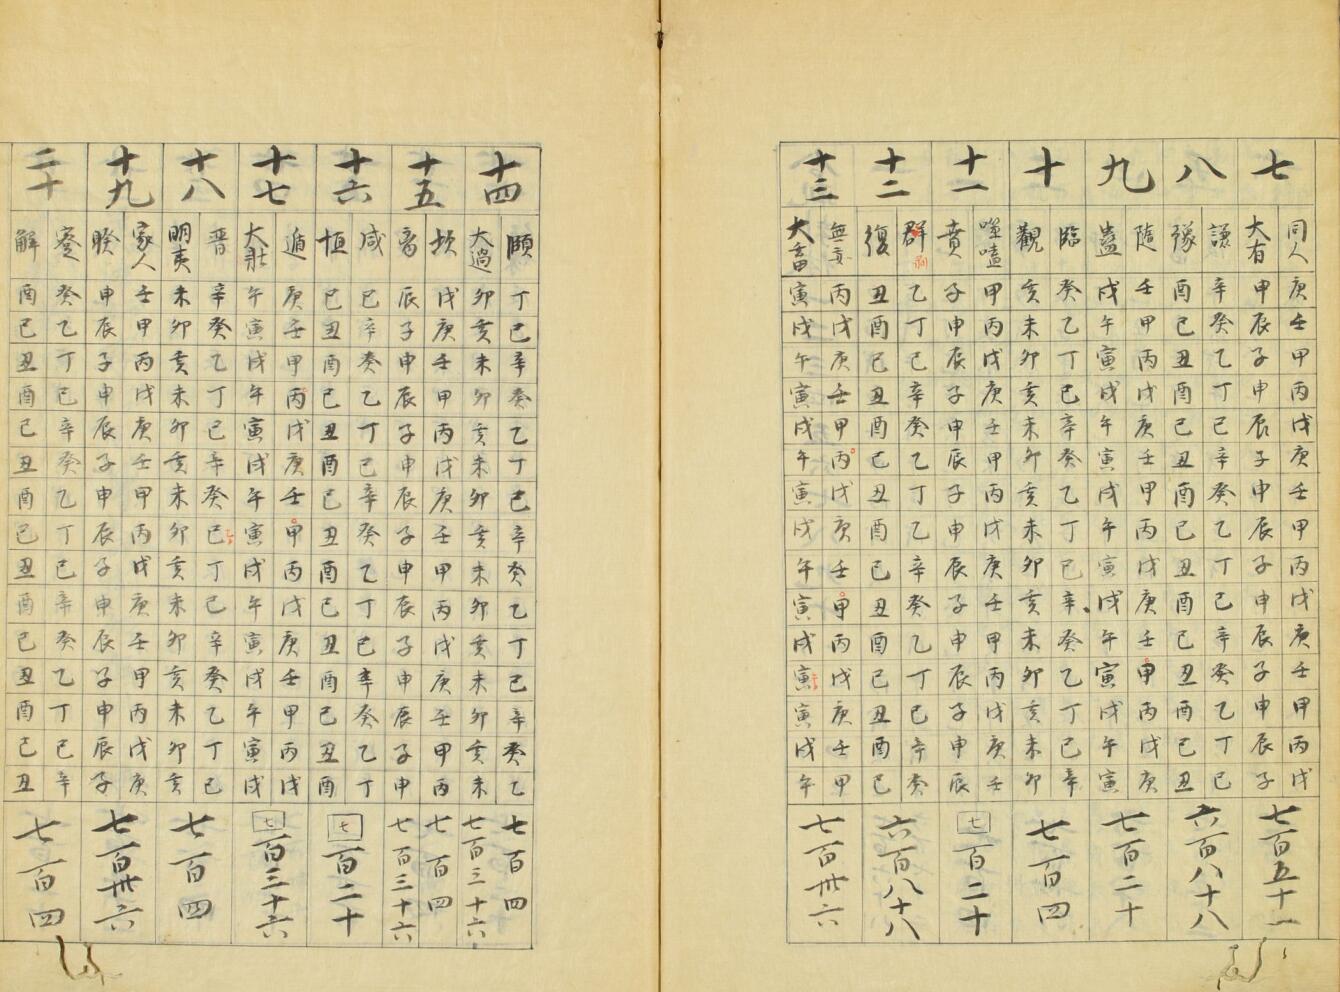 七
同人庚壬甲丙戊庚壬甲丙戊庚壬甲丙戊
大有甲辰子申辰子申辰子申辰子申辰子
七百五十二
八
謙辛癸乙丁己辛癸乙丁己辛癸乙丁己
豫酉巳丑酉巳丑酉巳丑酉巳丑酉巳丑
六百八十八
九
隨壬甲丙戊庚壬甲丙戊庚壬甲丙戊庚
蠱戌午寅戌午寅戌午寅戌午寅戌午寅
七百二十
十
臨癸乙丁己辛癸乙丁己辛癸乙丁己辛
觀亥未卯亥未卯亥未卯亥未卯亥未卯
七百四
十一
噬嗑甲丙戊庚壬甲丙戊庚壬甲丙戊庚壬
賁子申辰子申辰子申辰子申辰子申辰
七百二十
十二
群乙丁己辛癸乙丁乙辛癸乙丁己辛癸
復丑酉巳丑酉巳丑酉巳丑酉巳丑酉巳
六百八十八
十三
無妄丙戊庚壬甲丙戊庚壬甲丙戊庚壬甲
大畜寅戌午寅戌午寅戌午寅戌寅寅戌午
七百卅六
十四
頤丁己辛癸乙丁己辛癸乙丁己辛癸乙
七百四
大過卯亥未卯亥未卯亥未卯亥未卯亥未
七百三十六
十五
坎戊庚壬甲丙戊庚壬甲丙戊庚壬甲丙
七百四
辰子申辰子申辰子申辰子申辰子申
七百三十六
十六
咸己辛癸乙丁己辛癸乙丁己辛癸乙丁
恒巳丑酉巳丑酉巳丑酉巳丑酉巳丑酉
七百二十
十七
遁庚壬甲丙戊庚壬甲丙戊庚壬甲丙戊
大壯午寅戌午寅戌午寅戌午寅戌午寅戌
七百三十六
十八
晋辛癸乙丁己辛癸己丁己辛癸乙丁己
明夷未卯亥未卯亥未卯亥未卯亥未卯亥
七百四
十九
家人壬甲丙戊庚壬甲丙戊庚壬甲丙戊庚
睽申辰子申辰子申辰子申辰子申辰子
七百卅六
二十
蹇癸乙丁己辛癸乙丁己辛癸乙丁己辛
解酉巳丑酉巳丑酉巳丑酉巳丑酉巳丑
七百四